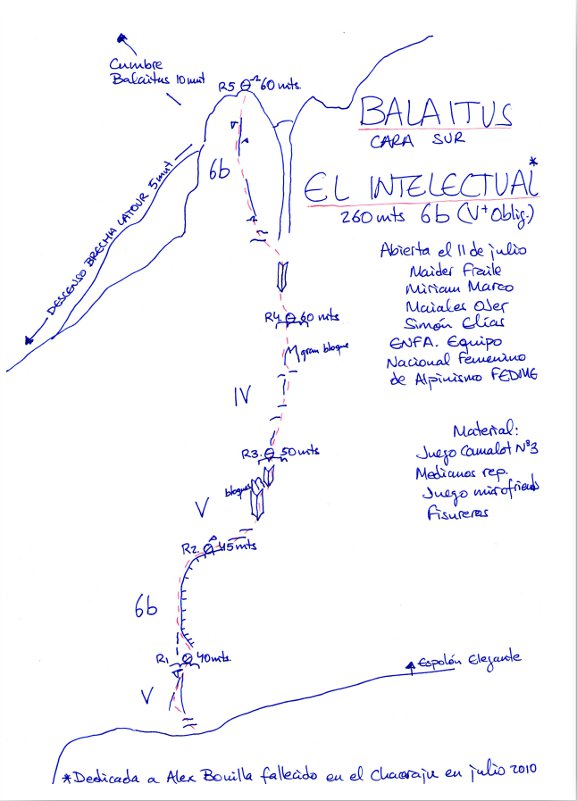 Cumbre
Balaitus 10 mnt
R5 60 mts.
BALAITUS
CARA SUR
6b
EL INTELECTUAL*
260 mts 6b (V+ Oblig.)
DESCENSO BRECHA LATOUR 5 mnt
Abierta el 11 de julio
Naider Fraile
Miriam Marco
Maiales Oser
Simón Elías
ENFA. Equipo
Nacional Femenino
de Alpinismo FEDME
R4 60 mts
gran bloque
IV
R3 50 mts
bloques
V
Material:
Juego Camalot Nº3
Medianos rep.
Juego microfriends
Fisureros
R2 45 mts
6b
R1 40 mts.
V
Espolón Elegante
*Dedicada a Alex Bonilla fallecido en el Chacraraju en julio 2010